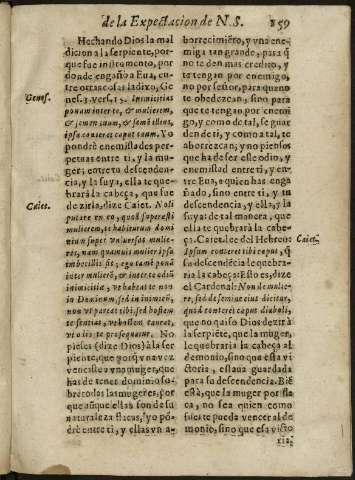 de la Expectacion de N.S. 259
Hechando Dios la mal
dicion a la serpiente, por-
que fue instrumento, por
donde engañò a Eua, en-
tre otras cosas la dixo, Ge
Genes.
nes. 3. vers. 15. Inimicitias
ponam inter te, & mulierem,
& semen tuum, & semẽ illius,
ipsa conteret caput tuum. Yo
pondrè enemistades per-
petuas entre ti, y la mu-
ger; entre tu descenden-
cia, y la suya, ella te que-
brarà la cabeça, que fue
Caiet.
dezirla, dize Caiet. Noli
putare
mulierem, te habiturum domi
nium super vniuersas mulie-
res, nam quamuis mulier ipsa
imbecillis sit; ego tamẽ ponã
inter mulierẽ, & inter te odiũ
inimicitiæ, vt habeat te non
in Dominum, sed in inimicũ,
non vt pareat tibi, sed hostem
te sentias, vt hostem caueat,
vt te prosequatur. No
pieses (dize Dios) à la ser
piente, que porq̃ vna vez
venciste a vna muger, que
has de tener dominio so-
bre todas las mugeres, por
que aũque ellas son de su
naturaleza flacas, yo põ-
drè entre ti, y ellas vn a-
borrecimiẽto, y vna ene-
miga tan grande, para q̃
no te den mas credito, y
te tengan por enemigo,
no por señor, para quanto
te obedezcan, sino para
que te tengan por enemi
go, y como de tal, se guar
den de ti, y como a tal, te
aborrezcan, y no pienses
que ha de ser este odio, y
enemistad entre ti, y en-
tre Eua, a quien has enga
ñado, sino entre ti, y tu
descendencia, y ella, y la
suya: de tal manera, que
ella te quebrarà la cabe-
ça. Caiet. lee del Hebreo:
Caiet.
Ipsum conteret tibi caput, q̃
su descẽdẽcia le quebra-
ria la cabeça: Esto es, dize
el Cardenal: Non de mulie-
re, sed de semine eius dicitur,
quod conteret caput diaboli,
que no quiso Dios dezir à
la serpiẽte, que la muger,
le quebraria la cabeça al
demonio, sino que esta vi
ctoria, estaua guardada
para su descendencia. Biẽ
està, que la muger por fla
ca, no sea quien como
fuerte pueda vencer al de
monio, sino que esa victo
ria